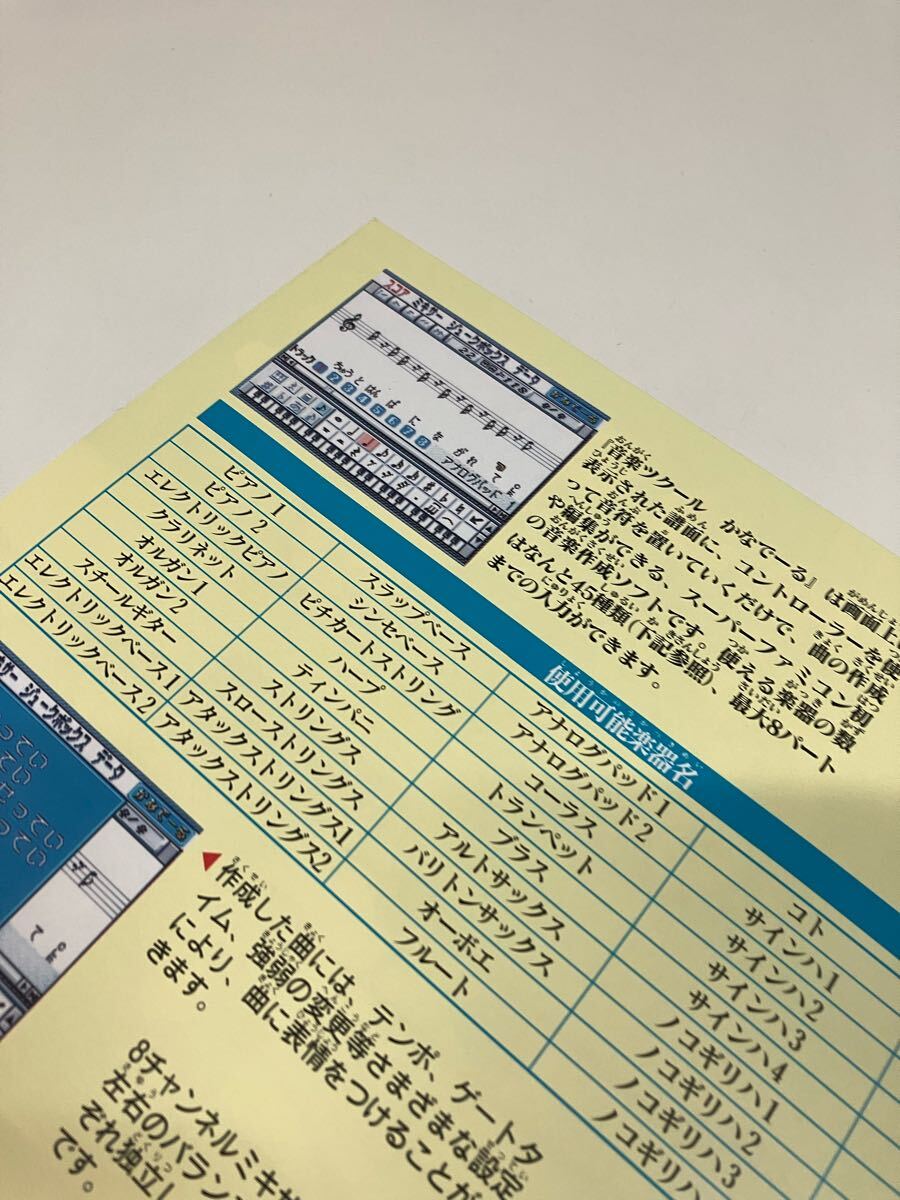 スコア ミキサー ジュークボックス データ かなでーる
トラック 1 2 3 4 5 6 7 8 アナログパッド 1
ちゅうと はん ぱ に な が れ て
『音楽ツクール かなでーる』は画面上
表示された譜面に、コントローラーを使
って音符を置いていくだけで、曲の作成
や編集ができる、スーパーファミコン初
の音楽作成ソフトです。使える楽器の数
はなんと45種類(下記参照)、最大8パート
までの入力ができます。
使用可能楽器名
ピアノ1
ピアノ2
エレクトリックピアノ
クラリネット
オルガン1
オルガン2
スチールギター
エレクトリックベース1
エレクトリックベース2
スラップベース
シンセベース
ピチカートストリング
ハープ
ティンパニ
ストリングス
スローストリングス
アタックストリングス1
アタックストリングス2
アナログパッド1
アナログパッド2
コーラス
トランペット
ブラス
アルトサックス
バリトンサックス
オーボエ
フルート
コト
サインハ1
サインハ2
サインハ3
サインハ4
ノコギリハ1
ノコギリハ2
ノコギリハ3
ノコギリハ
キサー ジュークボックス データ かなでーる
ってい
てい
せってい
ってい
作成した曲には、テンポ、ゲートタ
イム、強弱の変更等さまざまな設定
により、曲に表情をつけることが
きます。
8チャンネルミキサ
左右のバラン
ぞれ独立し
です。